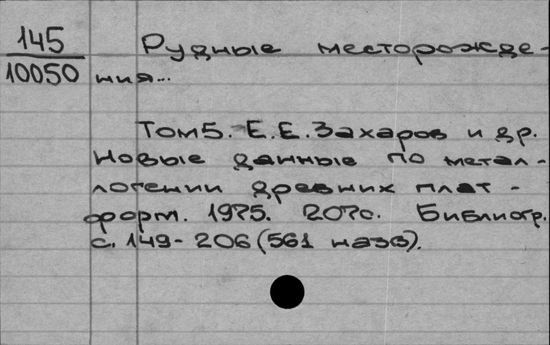 145
10050
Рудные месторожде-
ния...
Том 5. Е.Е.Захаров и др.
Новые данные по метал-
логении древних плат-
форм. 1975. 207с. Библиогр.
с. 149-206 (561 назв).